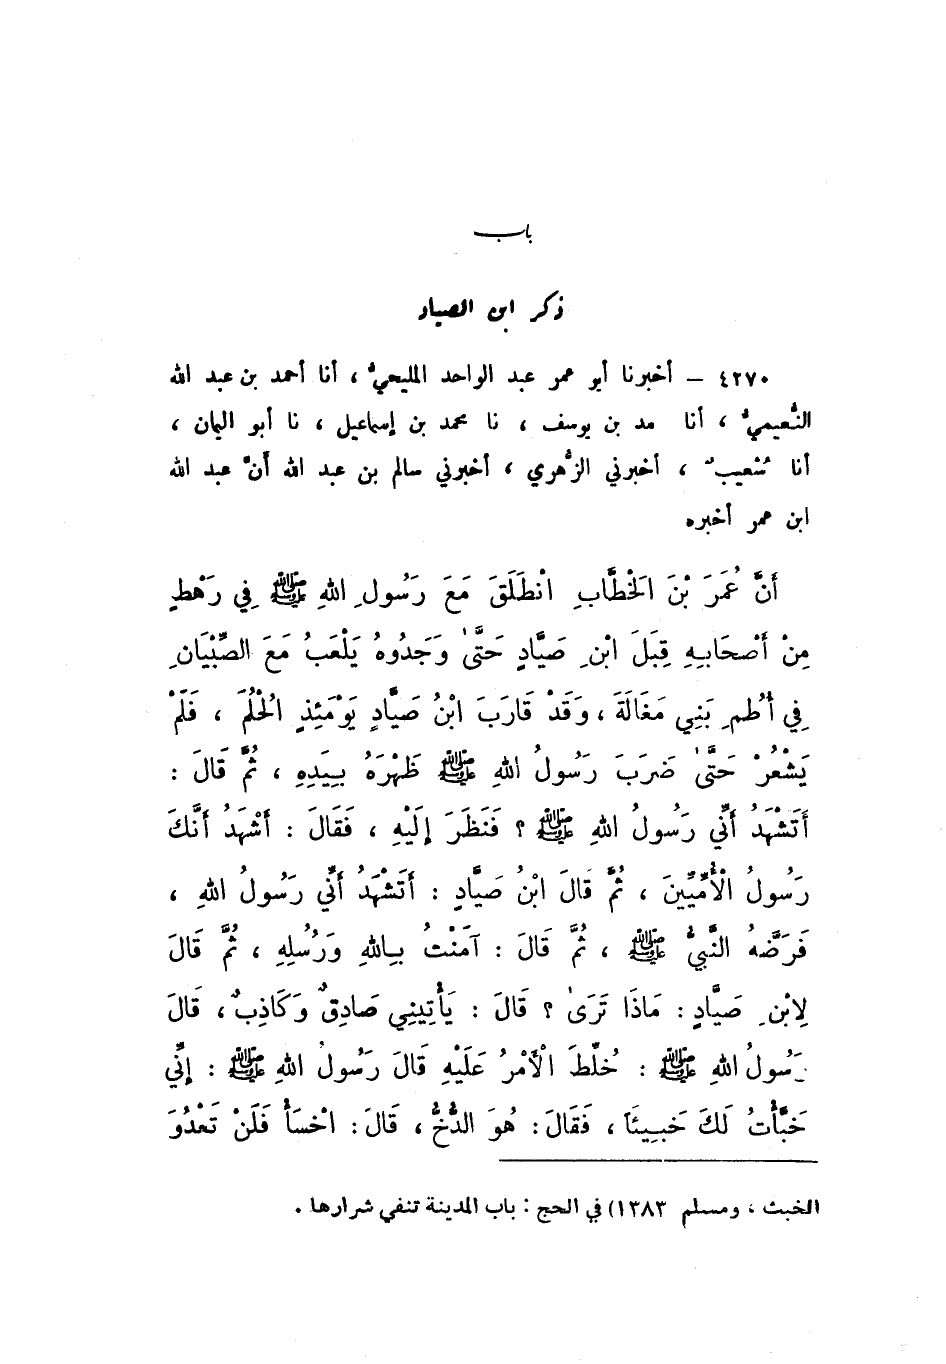 باب
ذكر ابن الصياد
٤٢٧٠ – أخبرنا أبو عمر عبد الواحد المليحيُّ ، أنا أحمد بن عبد الله
النُّعيميُّ ، أنا مد بن يوسف ، نا محمد بن إسماعيل ، نا أبو اليمان ،
أنا شعيبٌ ، أخبرني الزُّهوي ، أخبرني سالم بن عبد الله أنَّ عبد الله
ابن عمر أخبره
أَنَّ عُمَرَ بْنَ الْخَطَّابِ انْطَلَقَ مَعَ رَسُولِ اللهِ ﷺ فِي رَهْطٍ
مِنْ أَصْحَابِهِ قِبَلَ ابْنِ صَيَّادٍ حَتَّى وَجَدُوهُ يَلْعَبُ مَعَ الصِّبْيَانِ
فِي أُطُمِ بَنِي مَغَالَةَ ، وَقَدْ قَارَبَ ابْنُ صَيَّادٍ يَوْمَئِذٍ الْحُلُمَ ، فَلَمْ
يَشْعُرْ حَتَّى ضَرَبَ رَسُولُ اللهِ ﷺ ظَهْرَهُ بِيَدِهِ ، ثُمَّ قَالَ :
أَتَشْهَدُ أَنِّي رَسُولُ اللهِ ﷺ ؟ فَنَظَرَ إِلَيْهِ ، فَقَالَ : أَشْهَدُ أَنَّكَ
رَسُولُ الْأُمِّيِّينَ ، ثُمَّ قَالَ ابْنُ صَيَّادٍ : أَتَشْهَدُ أَنِّي رَسُولُ اللهِ ،
فَرَضَّهُ النَّبِيُّ ﷺ ، ثُمَّ قَالَ : آمَنْتُ بِاللهِ وَرُسُلِهِ ، ثُمَّ قَالَ
لِابْنِ صَيَّادٍ : مَاذَا تَرَى ؟ قَالَ : يَأْتِينِي صَادِقٌ وَكَاذِبٌ ، قَالَ
رَسُولُ اللهِ ﷺ : خُلِّطَ الْأَمْرُ عَلَيْهِ قَالَ رَسُولُ اللهِ ﷺ : إِنِّي
خَبَّأْتُ لَكَ خَبِيئًا ، فَقَالَ : هُوَ الدُّخُّ ، قَالَ : اخْسَأْ فَلَنْ تَعْدُوَ
الخبث ، ومسلم ١٣٨٣) في الحج : باب المدينة تنفي شرارها .